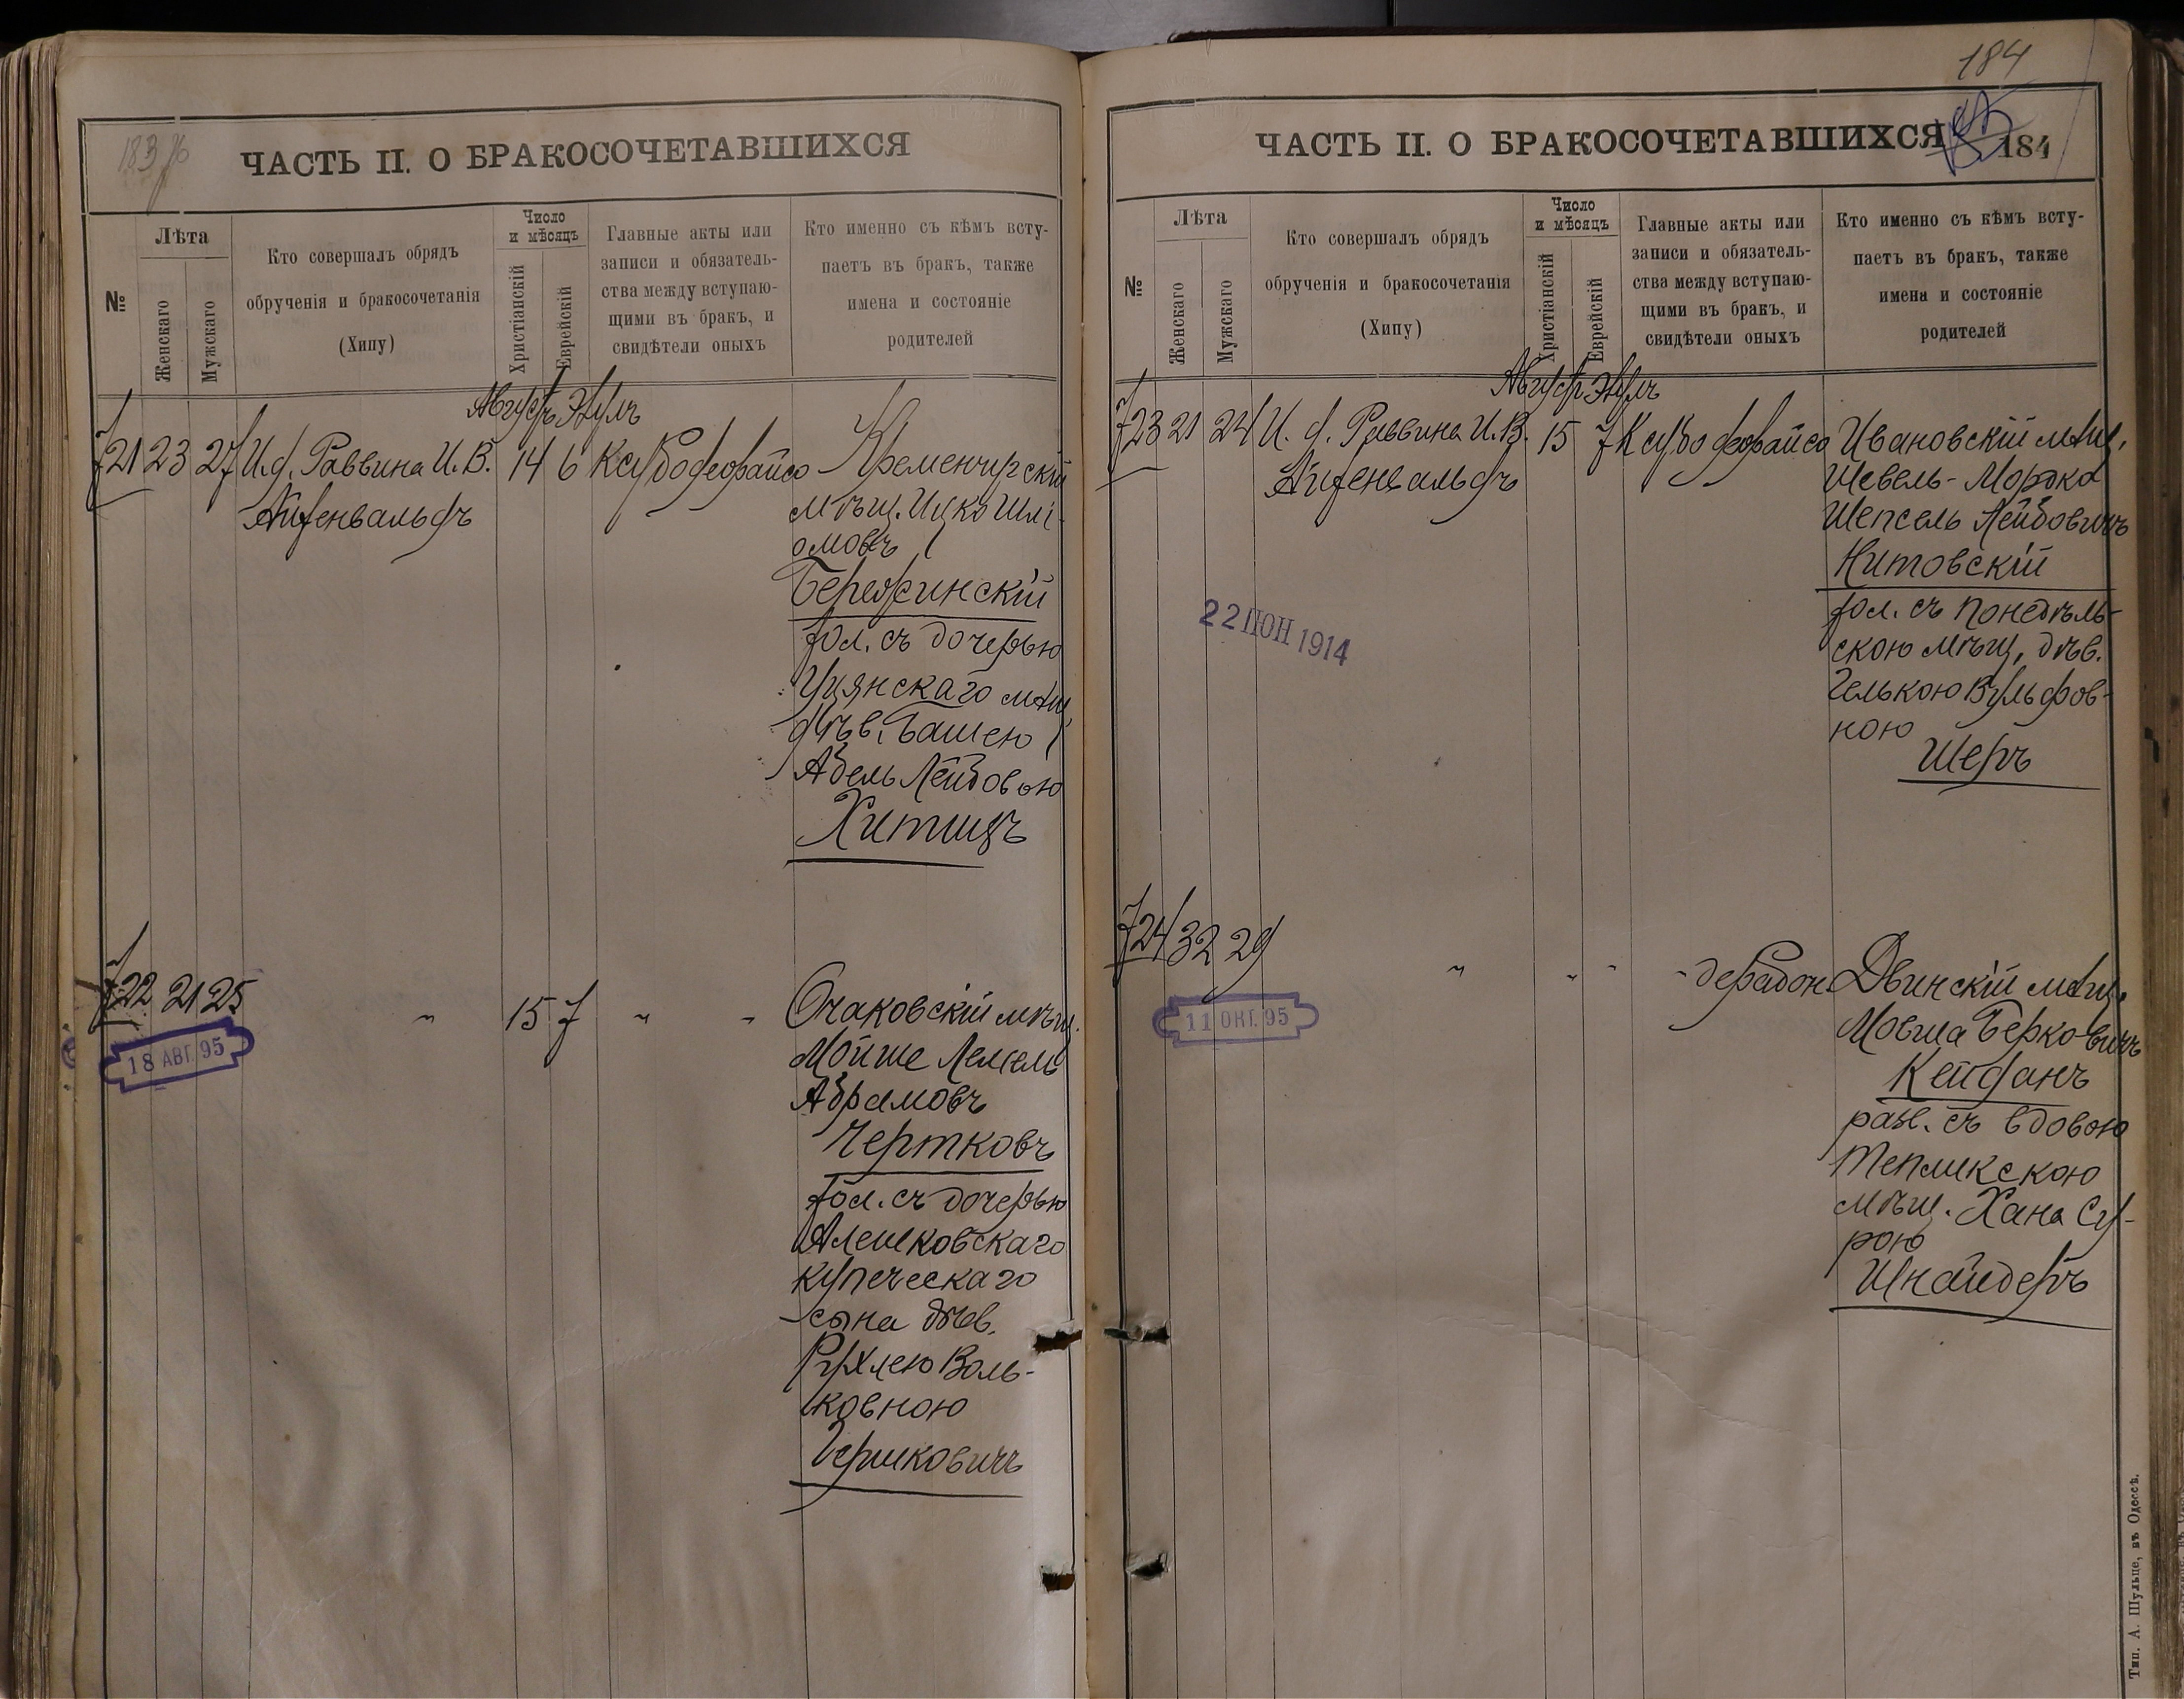 183
ЧАСТЬ II. О БРАКОСОЧЕТАВШИХСЯ
№
Лѣта
Женскаго
Мужскаго
Кто совершалъ обрядъ
обрученія и бракосочетанія
(Хипу)
Число
и мѣсяцъ
Христіанскій
Еврейскій
Главные акты или
записи и обязатель-
ства между вступаю-
щими въ бракъ, и
свидѣтели оныхъ
Кто именно съ кѣмъ всту-
паетъ въ бракъ, также
имена и состояніе
родителей
Августъ Элулъ
721 23 27 И.д. Раввина И.В. 14 6 Ксубо деорайсо Кременчугскій
Айзенвальдъ
мѣщ. Ицко Шлі-
омовъ
Березинскій
хол. съ дочерью
Уцянскаго мѣщ.
дѣв. Башею
Абель Лейбовою
Хитицъ
722 21 25 " 15 7 " " Очаковскій мѣщ.
18 АВГ. 95
Мойше Лемель
Абрамовъ
Чертковъ
хол. съ дочерью
Алешковскаго
купеческаго
сына дѣв.
Рухлею Воль-
ковною
Гершковичъ
184
ЧАСТЬ II. О БРАКОСОЧЕТАВШИХСЯ
184
№
Лѣта
Женскаго
Мужскаго
Кто совершалъ обрядъ
обрученія и бракосочетанія
(Хипу)
Число
и мѣсяцъ
Христіанскій
Еврейскій
Главные акты или
записи и обязатель-
ства между вступаю-
щими въ бракъ, и
свидѣтели оныхъ
Кто именно съ кѣмъ всту-
паетъ въ бракъ, также
имена и состояніе
родителей
Августъ Элулъ
723 21 24 И. д. Раввина И.В. 15 7 Ксубо деорайсо Ивановскій мѣщ.
Айзенвальдъ
Шевель-Мордко
Шепсель Лейбовичъ
Китовскій
хол. съ Понедѣль-
скою мѣщ. дѣв.
Гелькою Вульфов-
ною
Шеръ
22 ІЮН 1914
724 32 29 " " " " дерабонъ Двинскій мѣщ.
11 ОКТ. 95
Мовша Берковичъ
Кейданъ
разв. съ вдовою
Тепликскою
мѣщ. Хана Су-
рою
Шнайдеръ
Тип. А. Шульце, въ Одессѣ.